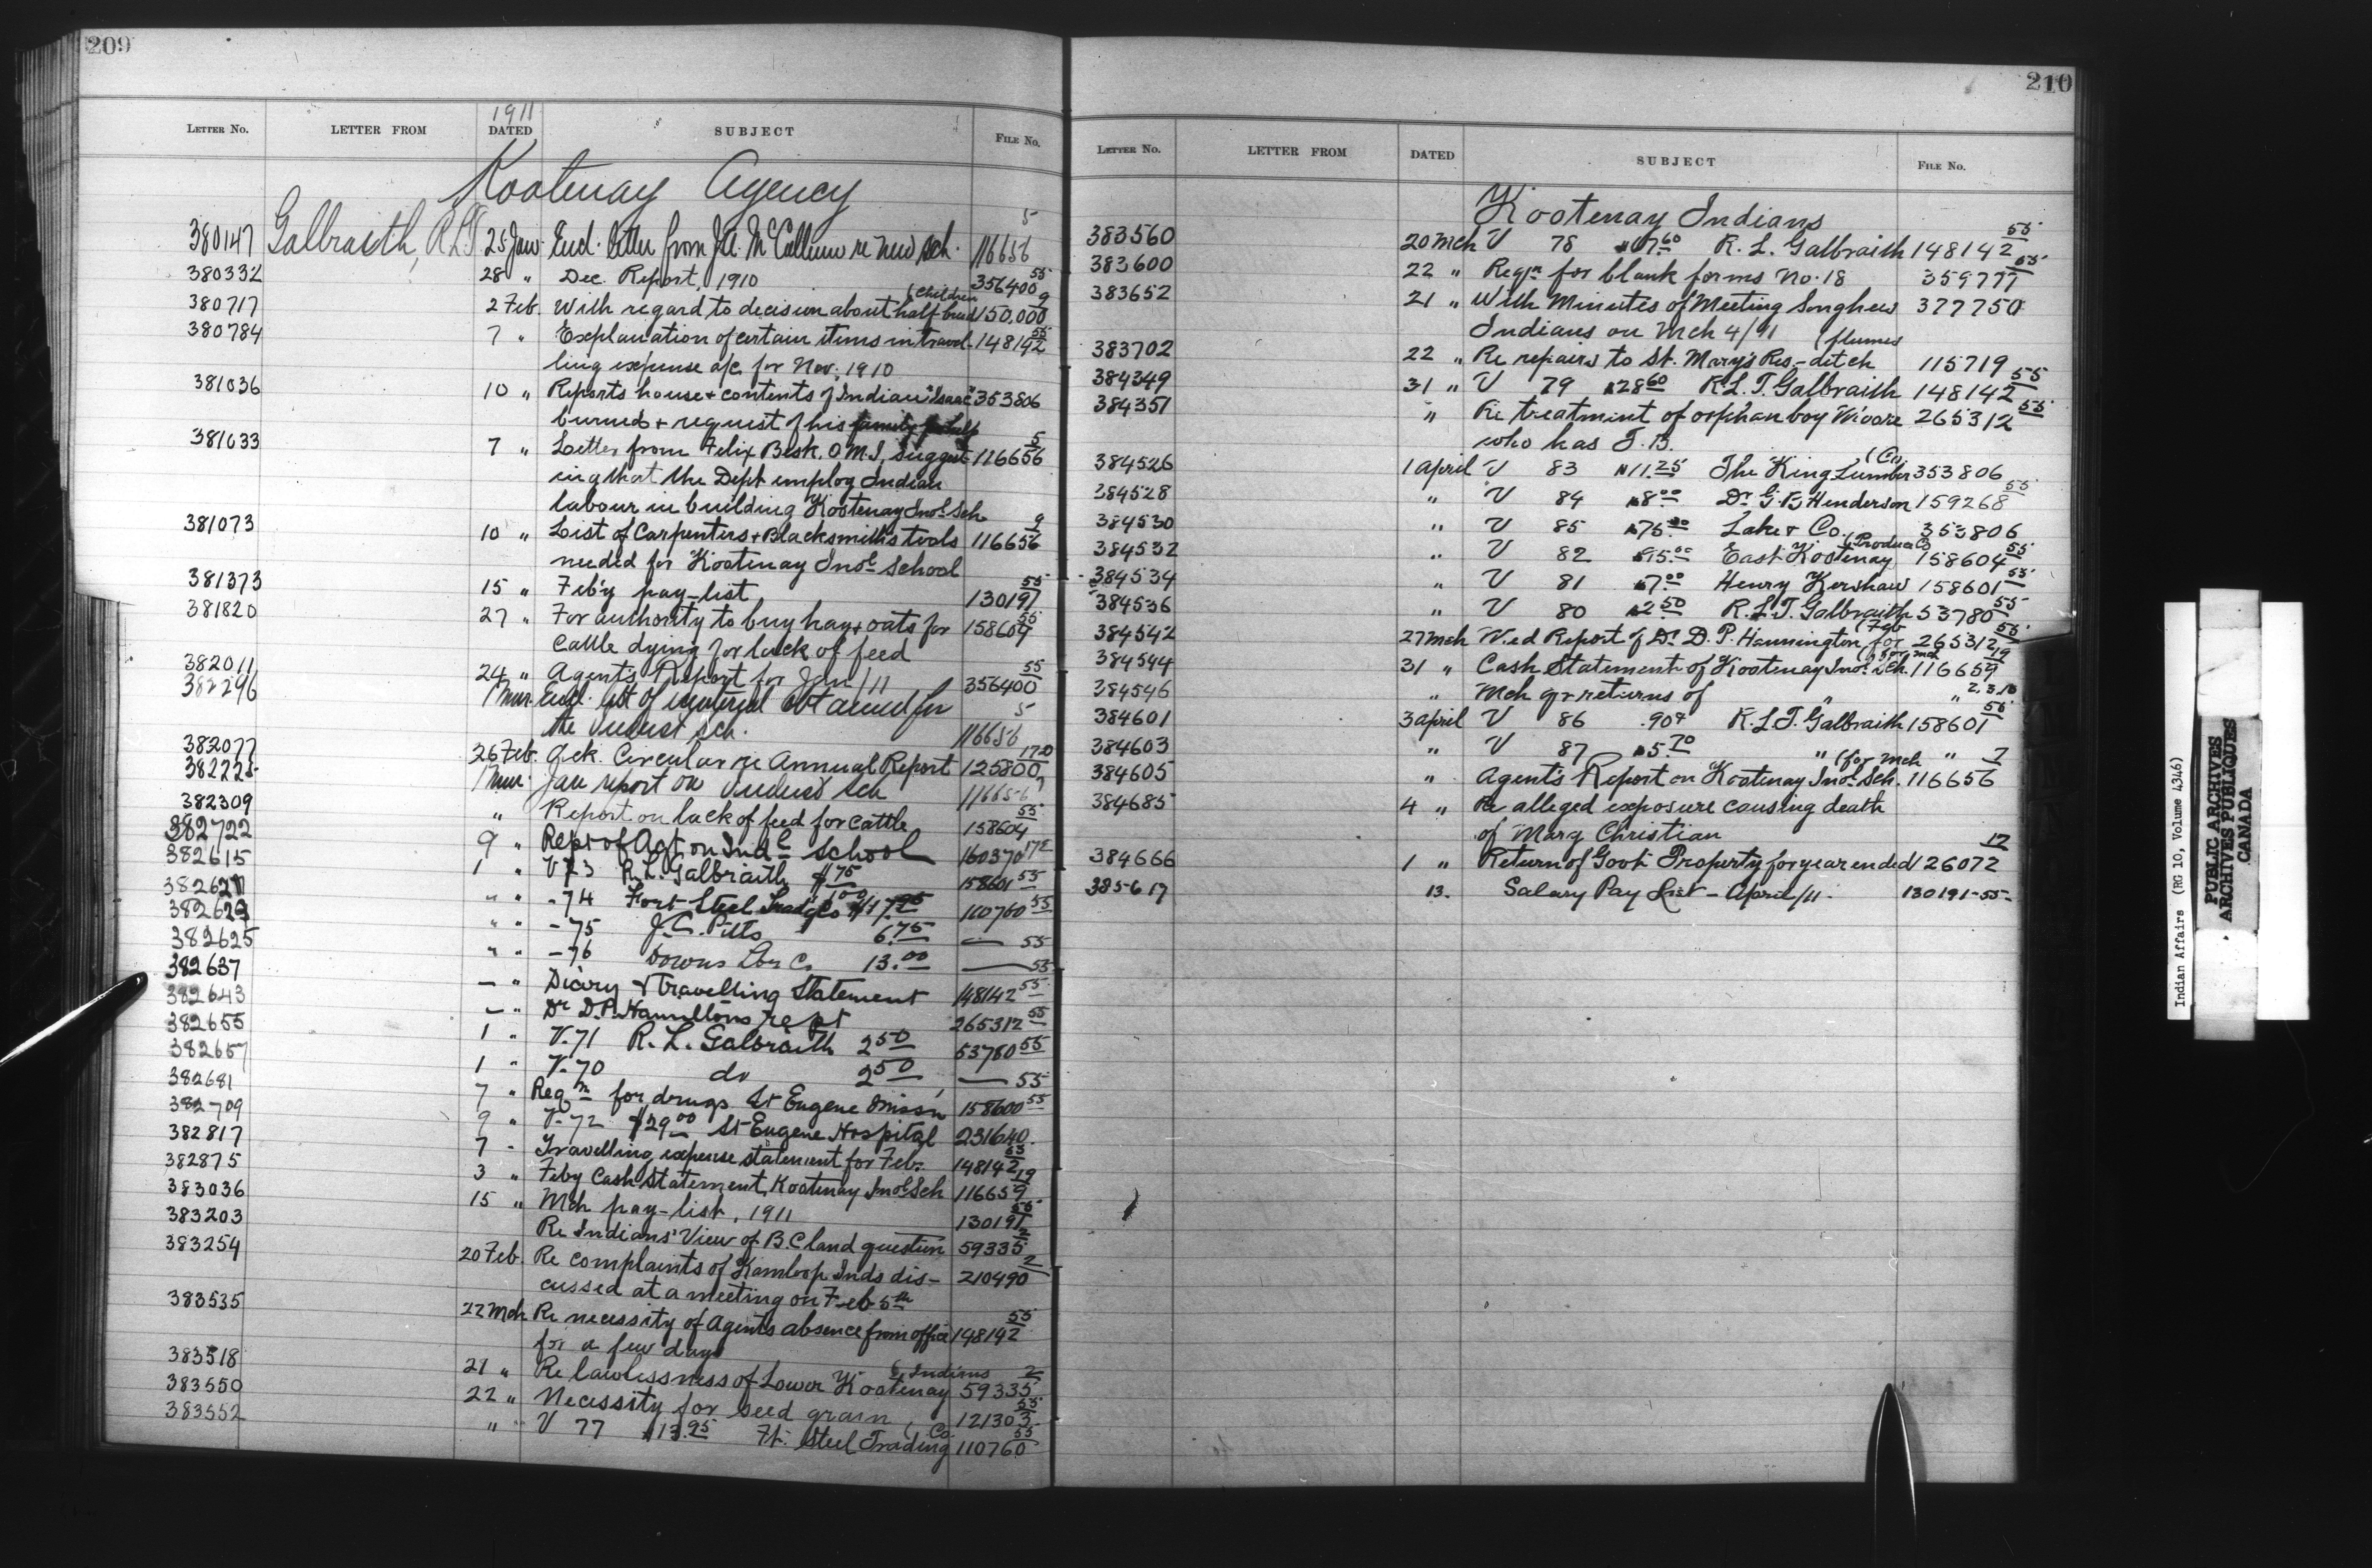 209
1911
LETTER No. LETTER FROM DATED SUBJECT FILE No.
Kootenay Agency
380147 Galbraith, R.L.T. 25 Jan. Encl. letter from McCallum re new sch. 116656 5
380332 28 " Dec. Report, 1910 356400 55
380717 2 Feb. With regard to decision about half-breed (children 150,000 9
380784 7 " Explanation of certain items in travel- 148142 55
ling expense a/c for Nov. 1910
381036 10 " Reports house + contents of Indian "Isaac" 353806
burned + request of his family for help
381033 7 " Letter from Felix Beck, O.M.I. suggest- 116656 5
ing that the Dept employ Indian
labour in building Kootenay Indl. Sch.
381073 10 " List of Carpenters + Blacksmith's tools 116656 9
needed for Kootenay Indl. School
381373 15 " Feb'y pay-list 130191 55
381820 27 " For authority to buy hay + oats for 158604 55
cattle dying for lack of feed
382011 24 " Agent's Report for Jan/11 356400 55
382296 1 Mar. Encl. list of material obtained for
the Indust sch. 116656 5
382077 26 Feb. Ack. Circular re Annual Report 125800 17-0
382225 1 Mar. Jan report on Indust sch 116656
382309 " Report on lack of feed for cattle 158604 55
382722 9 " Rept of Agt on Indl. School 160370 172
382615 1 " V 73 R. L. Galbraith $1.75 158601 55
382621 " " -74 Fort Steel Trad'g Co 110760 55
382623 " " -75 J. C. Pitts 6.75 — 55
382625 " " -76 Downs Lbr Co. 13.00 — 55
382637 — " Diary & Travelling Statement 148142 55
382643 — " Dr D.P. Hamiltons rept 265312 55
382655 1 " V-71 R. L. Galbraith 2.50 53780 55
382657 1 " V-70 do 2.50 — 55
382681 7 " Reqn for drugs St Eugene Miss'n 158600 55
382709 9 " V-72 $29.00 St Eugene Hospital 231640.
382817 7 - Travelling expense statement for Feb. 148142 55
382875 3 " Feby Cash Statement, Kootenay Indl. Sch 116659 19
383036 15 " Mch pay-list, 1911 130191 55
383203 Re Indians' View of B.C. land question 59335 2
383254 20 Feb. Re complaints of Kamloop Inds dis- 210490 2
cussed at a meeting on Feb 5th
383535 22 Mch Re necessity of Agents absence from office 148142 55
for a few days
383518 21 " Re lawlessness of Lower Kootenay (Indians 59335 2
383550 22 " Necessity for seed grain 121303 55
383552 " V 77 $13.95 Ft. Steel Trading (Co. 110760 55
210
LETTER No. LETTER FROM DATED SUBJECT FILE No.
Kootenay Indians
383560 20 Mch V 78 R. L. Galbraith 148142 55
383600 22 " Reqn for blank forms No. 18 359777 55
383652 21 " With Minutes of Meeting Songhees 377750
Indians on Mch 4/11
383702 22 " Re repairs to St. Mary's Res- ditch (flumes 115719
384349 31 " V 79 $28.60 R.L.T. Galbraith 148142 55
384351 " Re treatment of orphan boy Moore 265312 55
who has T.B.
384526 1 April V 83 $11.25 The King Lumber (Co. 353806
384528 " V 84 $8.00 Dr G. B Henderson 159268 55
384530 " V 85 $75.00 Lake & Co. 353806
384532 " V 82 $95.00 East Kootenay (Produce Co 158604 55
384534 " V 81 $7.00 Henry Kershaw 158601 55
384536 " V 80 $2.50 R.L.T. Galbraith 53780 55
384542 27 Mch Med Report of Dr. D. P. Hannington for (Feb 265312 55
384544 31 " Cash Statement of Kootenay Indl. Sch. (for Mch 116659 19
384546 " Mch qr returns of " " 2.3.18
384601 3 April V 86 .90¢ R.L.T. Galbraith 158601 55
384603 " V 87 $5.70 " "
384605 " Agent's Report on Kootenay Indl. Sch. (for Mch 116656 7
384685 4 " Re alleged exposure causing death
of Mary Christian
384666 1 " Return of Govt Property for year ended 126072 17
385617 13. Salary Pay List - April/11. 130191-55-
Indian Affairs (RG 10, Volume 4346)
PUBLIC ARCHIVES
ARCHIVES PUBLIQUES
CANADA